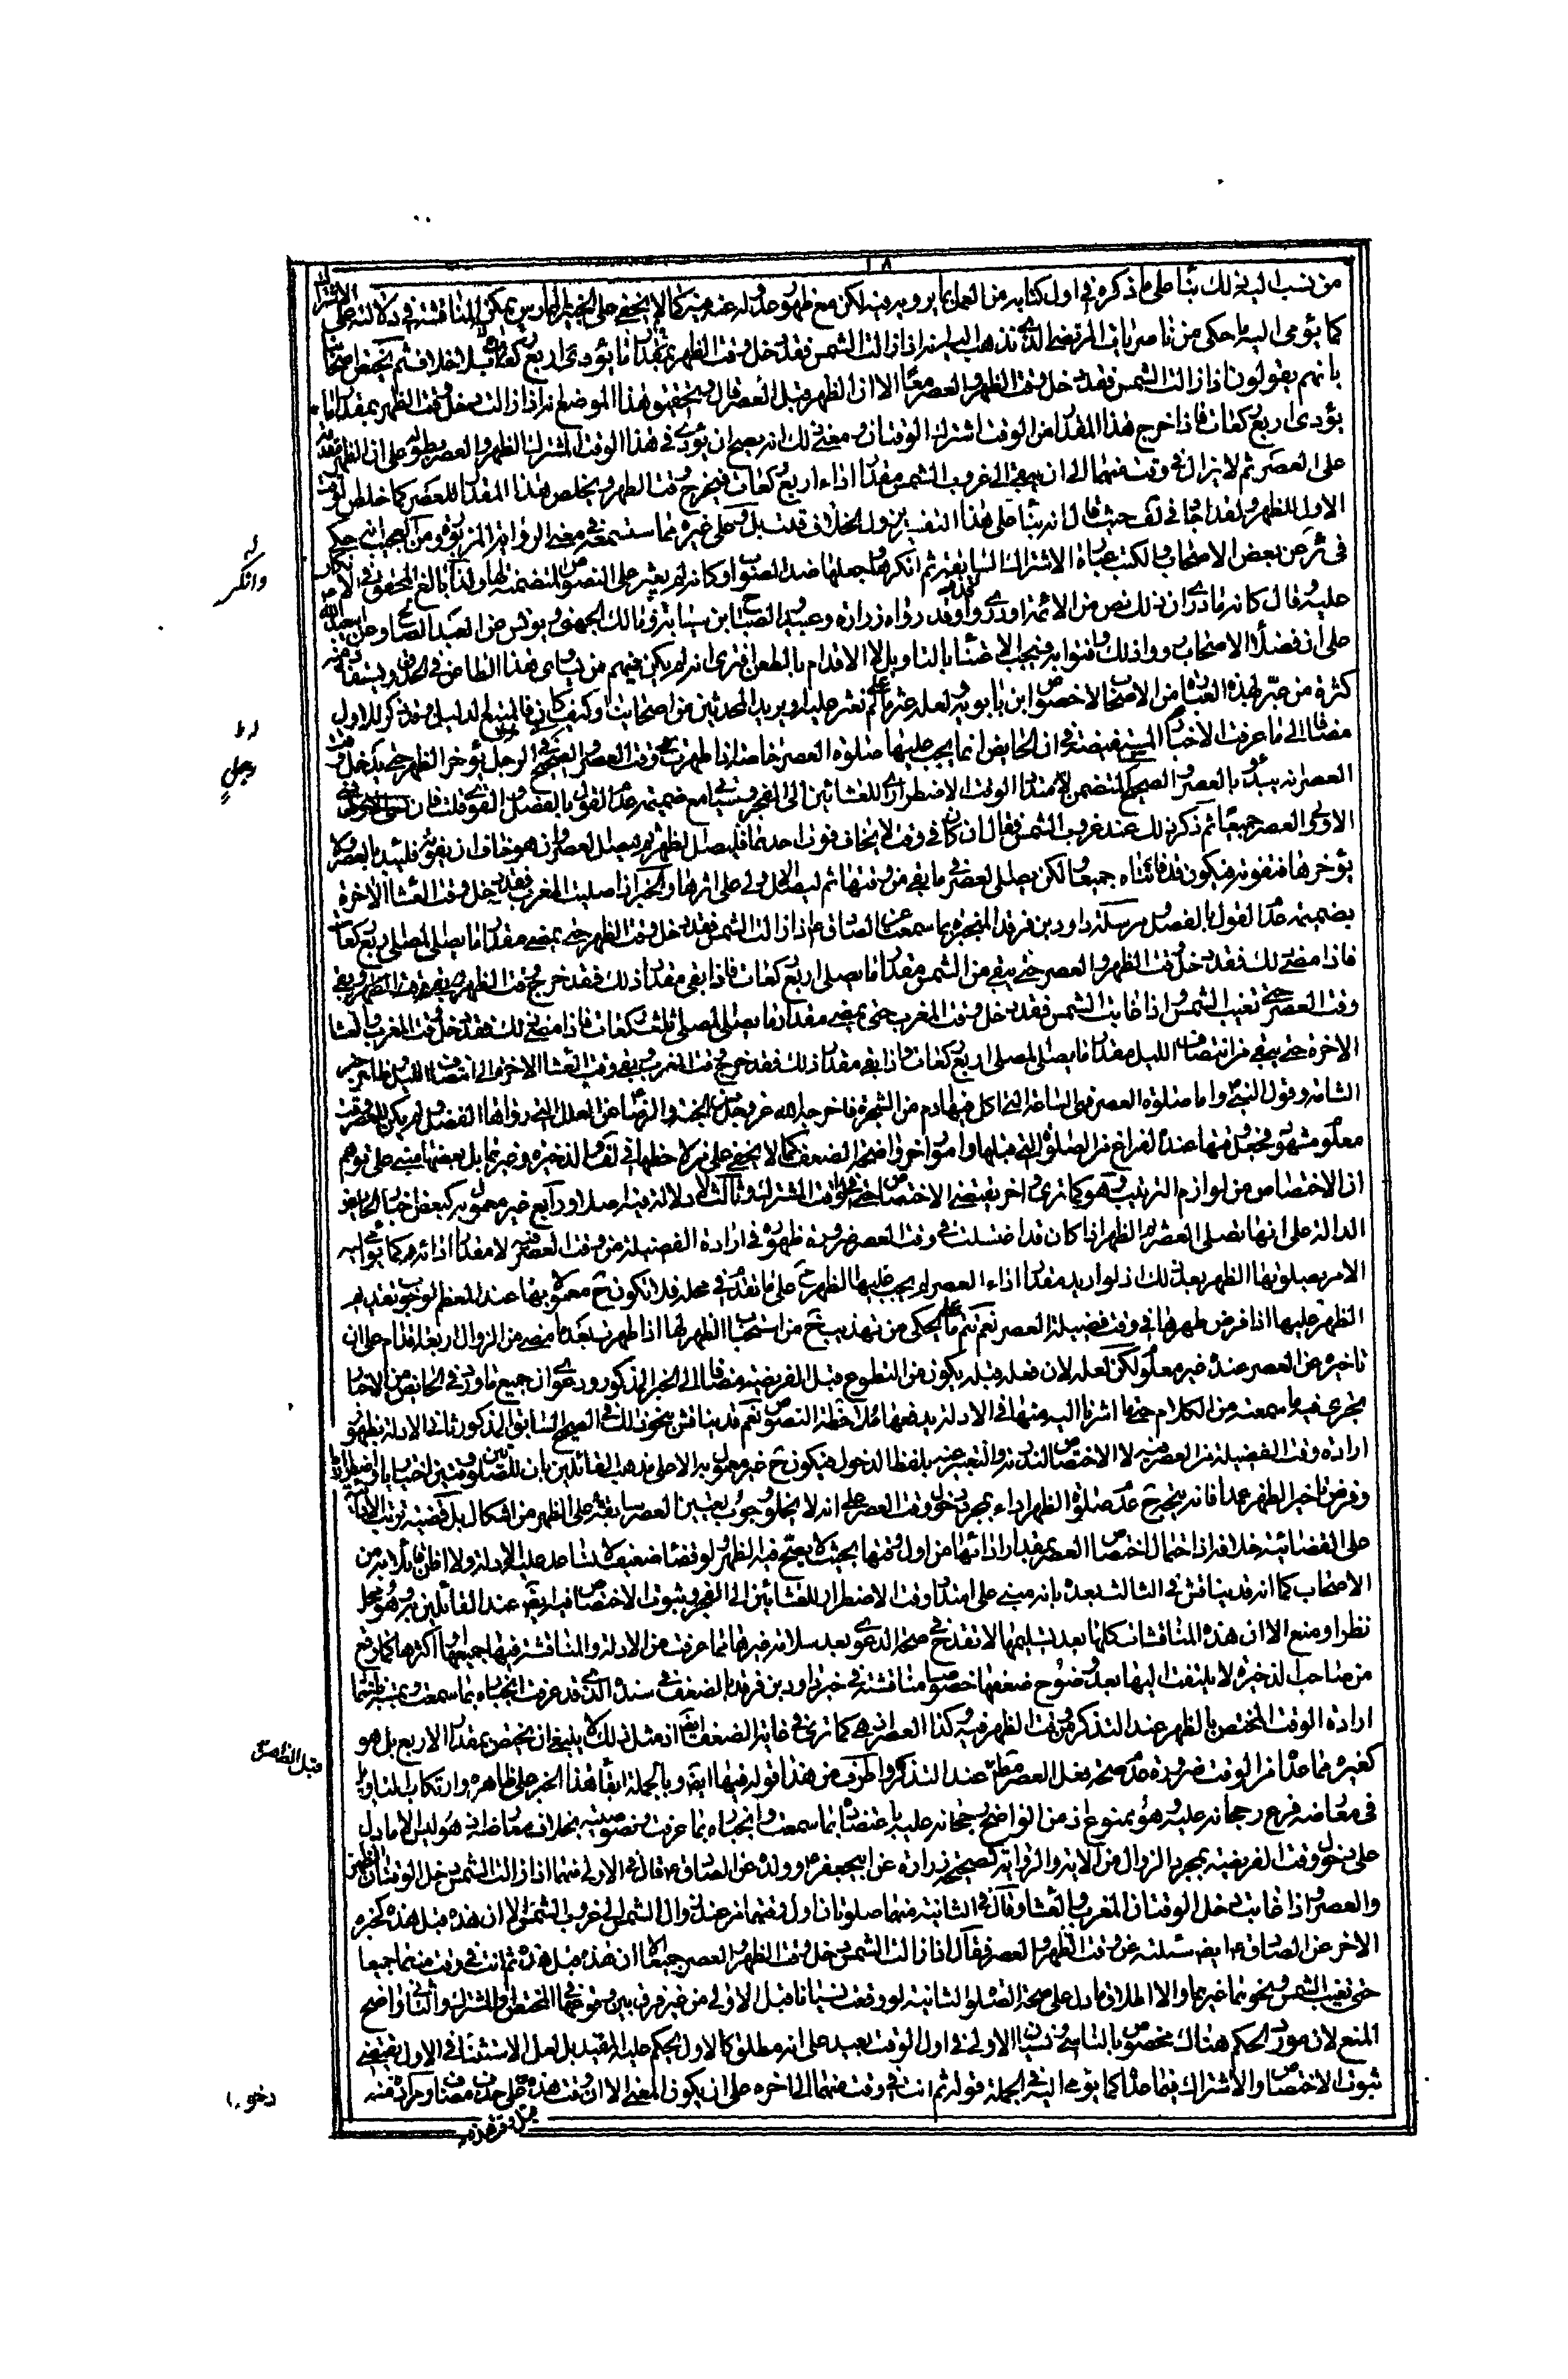 ١٨
من نسب اليه ذلك بناء على ما ذكره في اول كتابه من العمل بما يرويه فيه لكن مع ظهور عدوله عنه فيه كما لا يخفى على الخبير الممارس يمكن المناقشة في دلالته على الاشتراك
كما يومي اليه ما حكي من ناصريات المرتضى الذي نذهب اليه انه اذا زالت الشمس فقد دخل وقت الظهر بمقدار ما يؤدى اربع ركعات بلا خلاف ثم يختص اصحابنا
بانهم يقولون اذا زالت الشمس فقد دخل وقت الظهر والعصر معا الا ان الظهر قبل العصر قال وتحقيق هذا الموضع انه اذا زالت دخل وقت الظهر بمقدار ما
يؤدى اربع ركعات فاذا خرج هذا المقدار من الوقت اشترك الوقتان ومعنى ذلك انه يصح ان يؤدى في هذا الوقت المشترك الظهر والعصر بطوله على ان الظهر مقدمة
على العصر ثم لا يزال في وقت منهما الى ان يبقى الى غروب الشمس مقدار اداء اربع ركعات فيخرج وقت الظهر ويخلص هذا المقدار للعصر كما خلص الوقت
الاول للظهر ولقد اجاد في لف حيث قال انه بناء على هذا التفسير يزول الخلاف قلت بل وعلى غيره مما ستسمعه في معنى الرواية المزبورة ومن العجيب انه حكى
في ئر عن بعض الاصحاب والكتب عبارة الاشتراك السابقة ثم انكرها وجعلها ضد الصواب وكانه لم يعثر على النصوص المتضمنة لها ولذا بالغ المحقق في الانكار
عليه وقال كانه ما درى ان ذلك نص من الائمة او درى واقدم وقد رواه زرارة وعبيد والصباح ابن سيابة ومالك الجهني ويونس عن العبد الصالح وعن ابي عبد الله
على ان فضلاء الاصحاب رووا ذلك وافتوا به فيجب الاعتناء بالتاويل لا الاقدام بالطعن افترى انه لم يكن فيهم من يساوي هذا الطاعن في الحذق ويستفاد منه
كثرة من عبر بهذه العبارة من الاصحاب لا خصوص ابن بابويه ولعله عثر على ما لم نعثر عليه او يريد المحدثين من اصحابنا وكيف كان فالمتبع الدليل وقد ذكر للاول
مضافا الى ما عرفت الاخبار المستفيضة في ان الحائض انما يجب عليها صلوة العصر خاصة اذا طهرت في وقت العصر والصحيح في الرجل يؤخر الظهر حتى يدخل وقت
العصر انه يبدأ بالعصر والصحيح المتضمن لامتداد الوقت الاضطراري للعشائين الى الفجر وسيأتي مع ضميمة عدم القول بالفصل والقوي قلت فان نسي
الاولى والعصر جميعا ثم ذكر ذلك عند غروب الشمس فقال ان كان في وقت لا يخاف فوت احدهما فليصل الظهر ثم ليصل العصر وان هو خاف ان يفوته فليبدء بالعصر ولا
يؤخرها فتفوته فيكون قد فاتتاه جميعا ولكن يصلي العصر في ما بقي من وقتها ثم ليصل الاولى على اثرها والخبر اذا صليت المغرب فقد دخل وقت العشاء الاخرة
بضميمة عدم القول بالفصل ومرسلة داود بن فرقد المنجبرة بما سمعت عن الصادق ع اذا زالت الشمس فقد دخل وقت الظهر حتى يمضي مقدار ما يصلي المصلي اربع ركعات
فاذا مضى ذلك فقد دخل وقت الظهر والعصر حتى يبقى من الشمس مقدار ما يصلي اربع ركعات فاذا بقي مقدار ذلك فقد خرج وقت الظهر وبقي
وقت العصر حتى تغيب الشمس واذا غابت الشمس فقد دخل وقت المغرب حتى يمضي مقدار ما يصلي المصلي ثلث ركعات فاذا مضى ذلك فقد دخل وقت المغرب والعشاء
الاخرة حتى يبقى من انتصاف الليل مقدار ما يصلي المصلي اربع ركعات واذا بقي مقدار ذلك فقد خرج وقت المغرب وبقي وقت العشاء الاخرة الى انتصاف الليل
وقول النبي ص واما صلوة العصر فهي الساعة التي اكل فيها ادم من الشجرة فاخرجه الله عز وجل من الجنة والرضا عن العلل التي رواها الفضل لم يكن للعصر وقت
معلوم مشهور فجعل وقتها عند الفراغ من الصلوة التي قبلها وامور اخر واضحة الضعف كما لا يخفى على من لاحظها في لف والذخيرة وغيرهما بل بعضها مبني على توهم
ان الاختصاص من لوازم الترتيب وهو كما ترى واخر يقتضي الاختصاص حتى في الوقت المشترك وثالث لا دلالة فيه اصلا ورابع غير معمول به كبعض اخبار الحائض
الدالة على انها تصلي العصر لا الظهر اذا كان قد اغتسلت في وقت العصر ضرورة ظهوره في ارادة الفضيلة من وقت العصر فيه لا مقدار ادائه كما يومي اليه
الامر بصلوتها الظهر بعد ذلك اذ لو اريد مقدار اداء العصر لم يجب عليها الظهر ح على ما تقدم في محله فلا تكون ح معمولا بها عند المعظم لوجوب تقديم
الظهر عليها اذا فرض طهرها في وقت فضيلة العصر نعم تتم على ما يحكى من تهذيب خ من استحباب الظهر لها اذا طهرت بعد ما مضى من الزوال اربعة اقدام على ان
تاخيره عن العصر عنده غير معلوم لكن لعله لان فعله قبله يكون من التطوع قبل الفريضة مضافا الى الخبر المذكور ودعوى ان جميع ما ورد في الحائض من الاخبار
يجري فيه ما سمعته من الكلام حتى ما اشرنا اليه منها في الادلة يدفعها ملاحظة النصوص نعم قد يناقش بنحو ذلك في الصحيح السابق المذكور ثاني الادلة بظهور
ارادة وقت الفضيلة من العصر فيه لا الاختصاص الذي التعبير عنه بلفظ الدخول فيكون ح غير معمول به الا على مذهب القائلين بان للصلوتين وقتين اختياريا واضطراريا
وفرض تاخير الظهر عمدا فانه يخرج ح عندهم صلوة الظهر اداء بمجرد دخول وقت العصر على انه لا يخلو وجوب تعيين العصر سابقة على الظهر من اشكال بل قضية ترتيب الادائية
على القضائية خلافه اذ احتمال اختصاص العصر بمقدار ادائها من اول وقتها بحيث لا يصح فيه الظهر ولو قضاء ضعيف لا تساعد عليه الادلة ولا اظن قائلا به من
الاصحاب كما انه قد يناقش في الثالث بعد بانه مبني على امتداد وقت الاضطراري للعشائين الى الفجر وثبوت الاختصاص فيه ايضا عند القائلين به وهو محل
نظر او منع الا ان هذه المناقشات كلها بعد تسليمها لا تقدح في صحة الدعوى بعد سلامة غيرها مما عرفت من الادلة والمناقشة فيها جميعها او اكثرها كما وقع
من صاحب الذخيرة لا يلتفت اليها بعد وضوح ضعفها خصوصا مناقشته في خبر داود بن فرقد بالضعف في سنده الذي قد عرفت انجباره بما سمعت
ارادة الوقت المختص بالظهر عند التذكر من وقت الظهر فيه وكذا العصر اذ هي كما ترى في غاية الضعف ايضا اذ مثل ذلك لا ينبغي ان يختص بمقدار الاربع بل هو
كغيره مما عدا من الوقت ضرورة عدم صحة فعل العصر قبل الظهر عند التذكر واطرف من هذا قوله فيها ايضا وبالجملة ابقاء هذا الخبر على ظاهره وارتكاب التاويل
في معارضه فرع رجحانه عليه وهو ممنوع اذ من الواضح رجحانه عليه باعتضاده بما سمعت وانجباره بما عرفت ونصوصيته بخلاف معارضه اذ هو ليس الا ما دل
على دخول وقت الفريضة بمجرد الزوال من الاية والرواية كصحيحة زرارة عن ابي جعفر ع وولده عن الصادق ع قال في الاولى منهما اذا زالت الشمس دخل الوقتان الظهر
والعصر واذا غابت دخل الوقتان المغرب والعشاء وقال في الثانية منهما صلوتان اول وقتهما من عند زوال الشمس الى غروب الشمس الا ان هذه قبل هذه كخبره
الاخر عن الصادق ع ايضا سئلته عن وقت الظهر والعصر فقال اذا زالت الشمس دخل وقت الظهر والعصر جميعا الا ان هذه قبل هذه ثم انت في وقت منهما جميعا
حتى تغيب الشمس ونحوهما غيرهما والا اطلاق ما دل على صحة الصلوة الثانية لو وقعت نسيانا قبل الاولى من غير فرق بين وقوعها في المختص والمشترك والثاني واضح
المنع لان مورد الحكم هناك مخصوص بالناسي ونسيان الاولى في اول الوقت بعيد على انه مطلق كالاول يحكم عليه المقيد بل لعل الاستثناء في الاول يقتضي
ثبوت الاختصاص والاشتراك فيما عداه كما يومي اليه في الجملة قوله ثم انت في وقت منهما الى اخره على ان يكون المعنى الا ان وقت هذه على حذف مضاف ومرادفه
قبل وقت هذه
وانكر
قبل الظهر